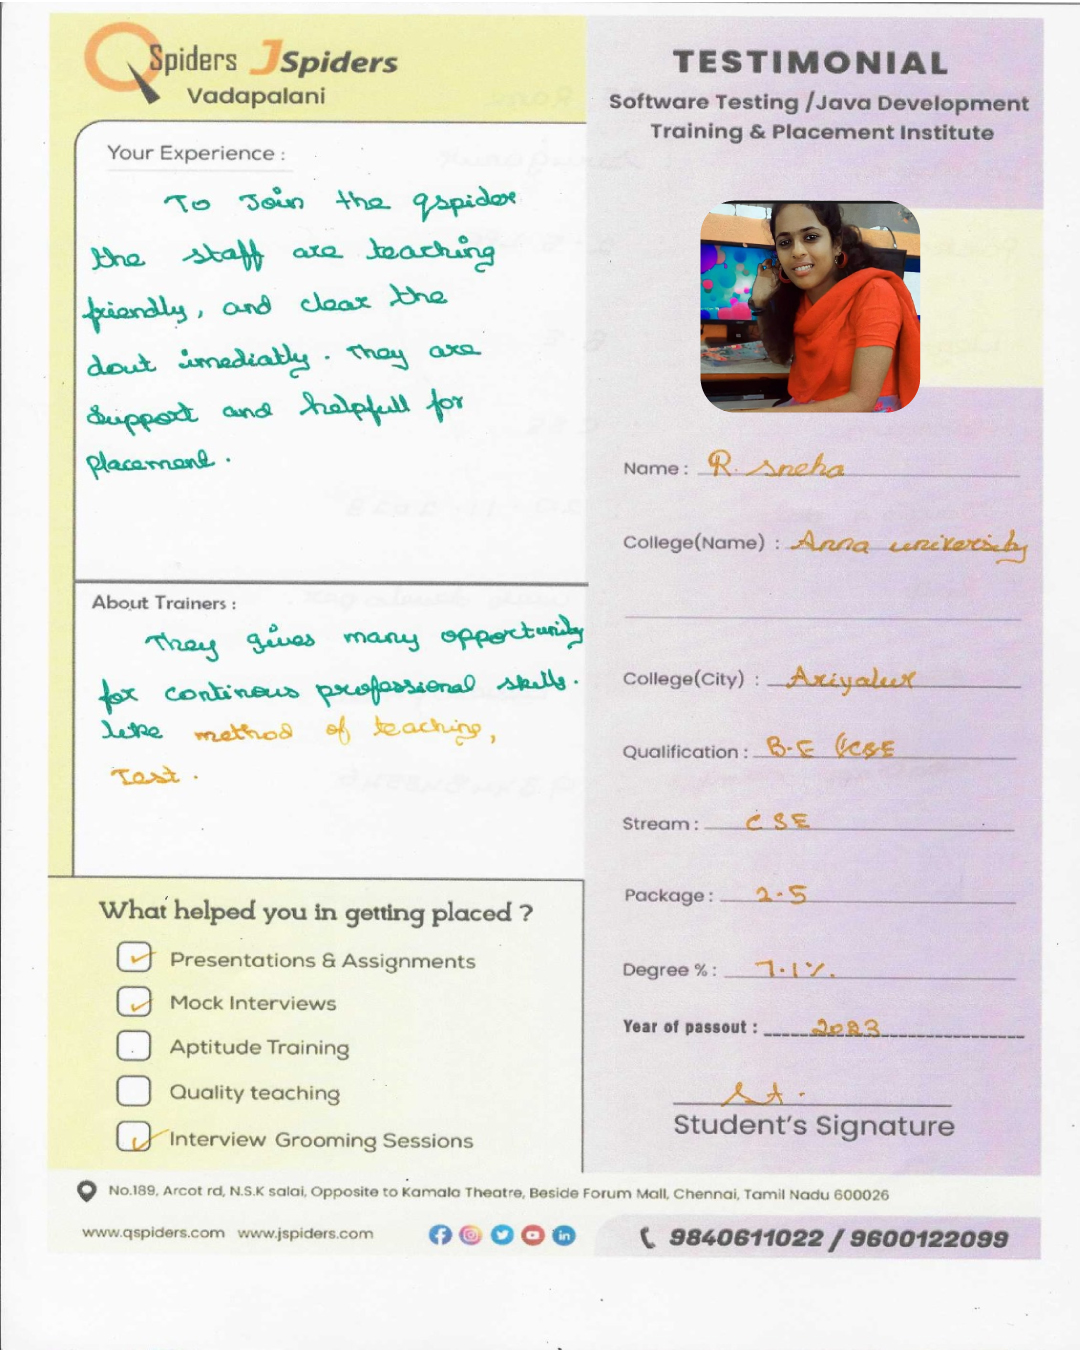 QSpiders JSpiders
Vadapalani
TESTIMONIAL
Software Testing /Java Development
Training & Placement Institute
Your Experience :
To Join the qspider
the staff are teaching
friendly, and clear the
dout imediatly. They are
Support and helpfull for
placement.
About Trainers :
They gives many opportunity
for continous professional skills.
like method of teaching,
Test.
What helped you in getting placed ?
Presentations & Assignments
Mock Interviews
Aptitude Training
Quality teaching
Interview Grooming Sessions
Name : R. Sneha
College(Name) : Anna university
College(City) : Ariyalur
Qualification : B.E (CSE
Stream : CSE
Package : 2.5
Degree % : 7.1%.
Year of passout : 2023
Student's Signature
No.189, Arcot rd, N.S.K salai, Opposite to Kamala Theatre, Beside Forum Mall, Chennai, Tamil Nadu 600026
www.qspiders.com www.jspiders.com
9840611022 / 9600122099